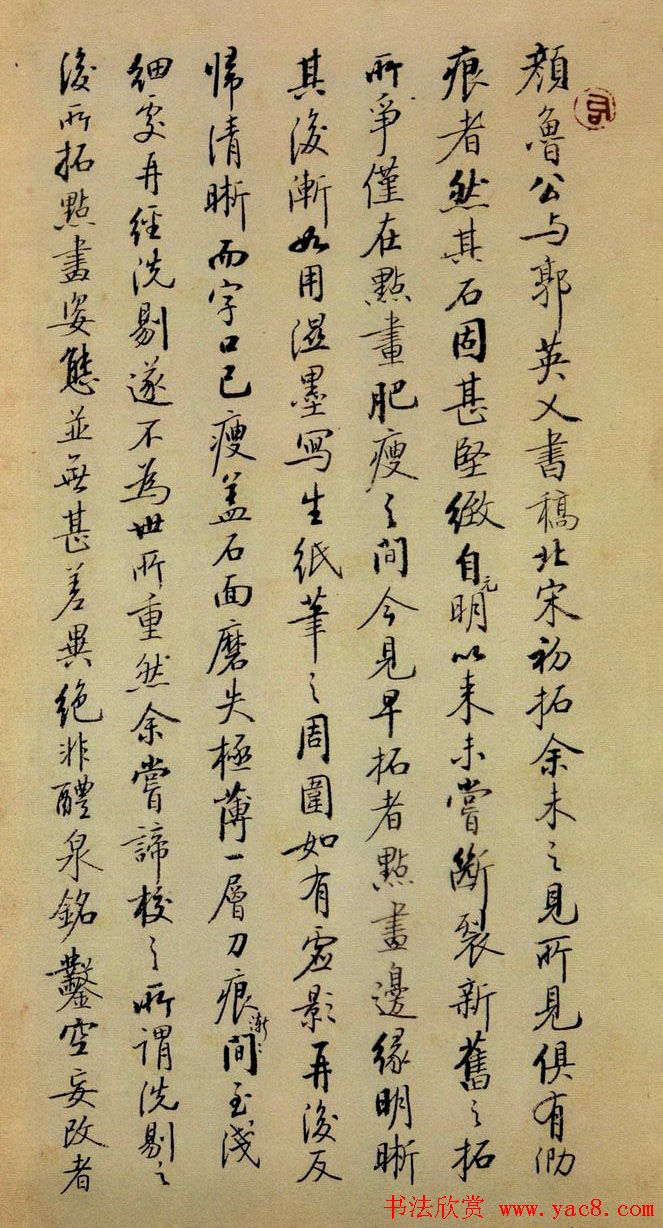 顔魯公与郭英乂書稿北宋初拓余未之見所見俱有泐
痕者然其石固甚堅緻自元明以来未嘗斷裂新舊之拓
所爭僅在點畫肥瘦之間今見早拓者點畫邊緣明晰
其後漸如用濕墨寫生紙筆之周圍如有虛影再後反
帰清晰而字口已瘦盖石面磨失極薄一層刀痕漸〻間至淺
細處再經洗剔遂不為世所重然余嘗諦校之所謂洗剔之
後所拓點畫姿態並無甚差異絶非醴泉銘鑿空妄改者
书法欣赏 www.yac8.com